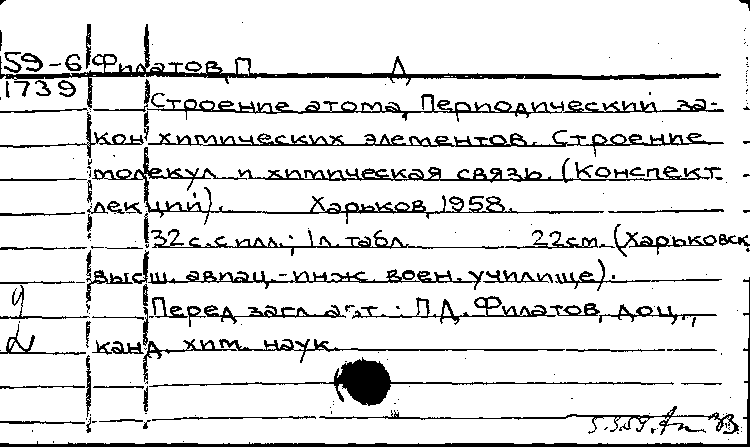 59-6 Филатов, П Д
1739
Строение атома, Периодический за-
кон химических элементов. Строение
молекул и химическая связь. (Конспект
лекций). Харьков, 1958.
32 с. с илл.; 1 л. табл. 22 см. (Харьковск
высш. авиац.-инж. воен. училище).
Перед загл. авт.: П.Д. Филатов, доц.,
канд. хим. наук.
5.3.59.